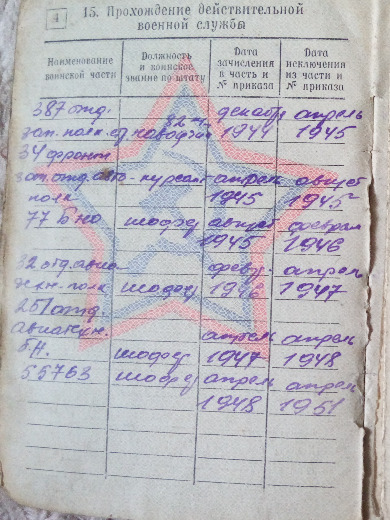 4
15. Прохождение действительной
военной службы
Наименование воинской части
Должность и воинское звание по штату
Дата зачисления в часть и № приказа
Дата исключения из части и № приказа
387 отд. декабрь апрель
зап. полк 1944 1945
34 фронт.
зап. отд. авто- курсант апрель август
полк 1945 1945
77 шофер август февраль
1945 1946
32 отд. авиа- февр. апрель
техн. полк шофер 1946 1947
251 отд.
авиатехн. апрель апрель
б-н. шофер 1947 1948
55763 шофер апрель апрель
1948 1951